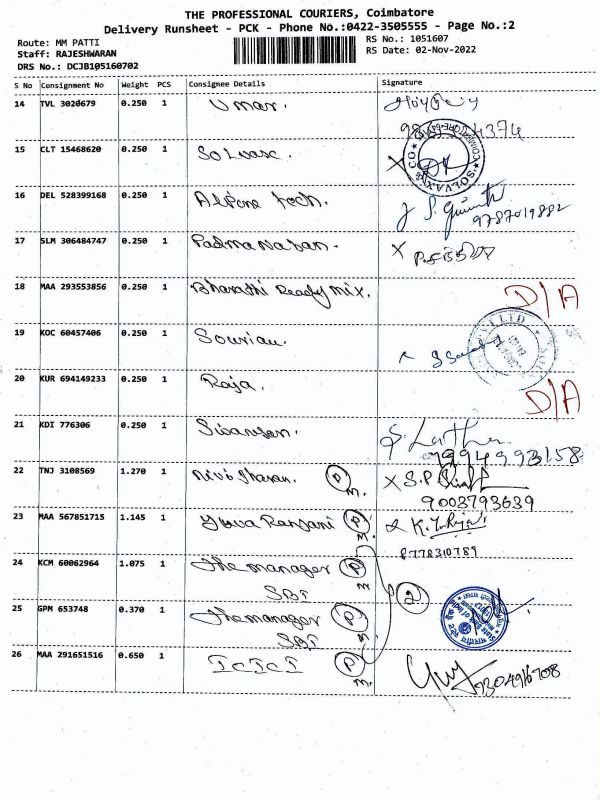 THE PROFESSIONAL COURIERS, Coimbatore
Delivery Runsheet - PCK - Phone No.:0422-3505555 - Page No.:2
Route: MM PATTI
Staff: RAJESHWARAN
DRS No.: DCJB105160702
RS No.: 1051607
RS Date: 02-Nov-2022
S No Consignment No Weight PCS Consignee Details Signature
14 TVL 3020679 0.250 1 Umar.
15 CLT 15468620 0.250 1 Solvasc. X
16 DEL 528399168 0.250 1 Alpine Tech. 9787019882
17 SLM 306484747 0.250 1 Padmanaban. X
18 MAA 293553856 0.250 1 Bharathi Ready mix. D/A
19 KOC 60457406 0.250 1 Sourian.
20 KUR 694149233 0.250 1 Raja. D/A
21 KDI 776306 0.250 1 Sivanesan. 7994993158
22 TNJ 3108569 1.270 1 P M. X S.P 9003793639
23 MAA 567851715 1.145 1 Yuva Ranjani P M. 8778310789
24 KCM 60062964 1.075 1 The manager SBI P M. 2
25 GPM 653748 0.370 1 The manager SBI P M.
26 MAA 291651516 0.650 1 ICICI P M. 9304916708